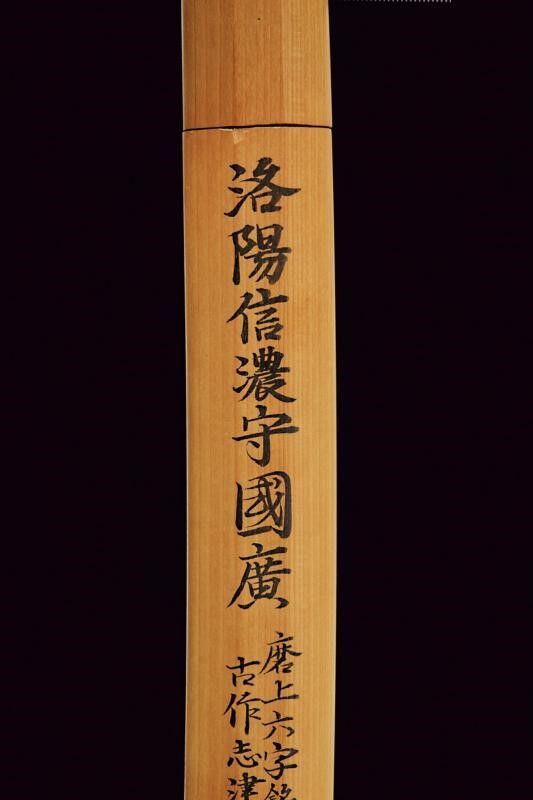 洛陽信濃守國廣
磨上六字銘
古作志津